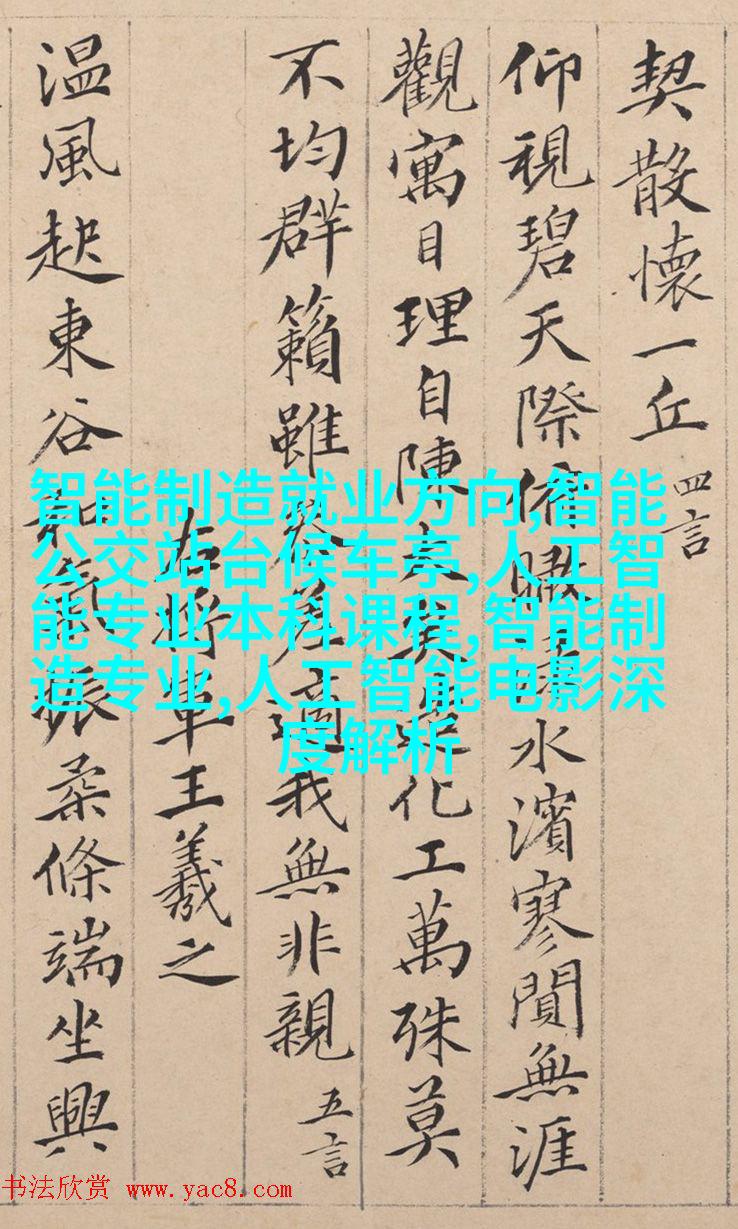 契散懷一丘 四言
仰視碧天際俯瞰水濱寥閴無涯
觀寓目理自陳大矣造化工萬殊莫
不均群籟雖參差適我無非親 五言
右將軍王羲之
温風起東谷和氣振柔條端坐興
智能制造就业方向,智能
公交站台候车亭,人工智
能专业本科课程,智能制
造专业,人工智能电影深
度解析
书法欣赏 www.yac8.com